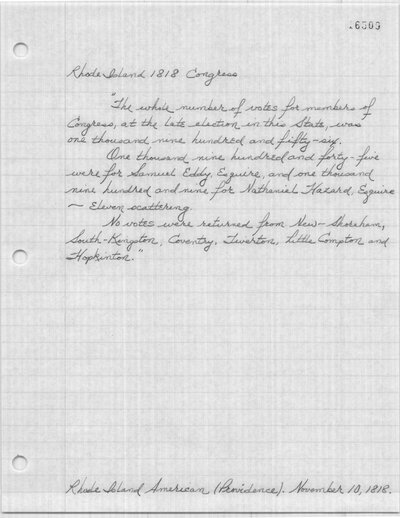 16599
Rhode Island 1818 Congress
"The whole number of votes for members of
Congress, at the late election in this State, was
one thousand nine hundred and fifty-six.
One thousand nine hundred and forty-five
were for Samuel Eddy, Esquire, and one thousand
nine hundred and nine for Nathaniel Hazard, Esquire
~ Eleven scattering.
No votes were returned from New-Shoreham,
South-Kingston, Coventry, Tiverton, Little Compton and
Hopkinton."
Rhode Island American (Providence). November 10, 1818.